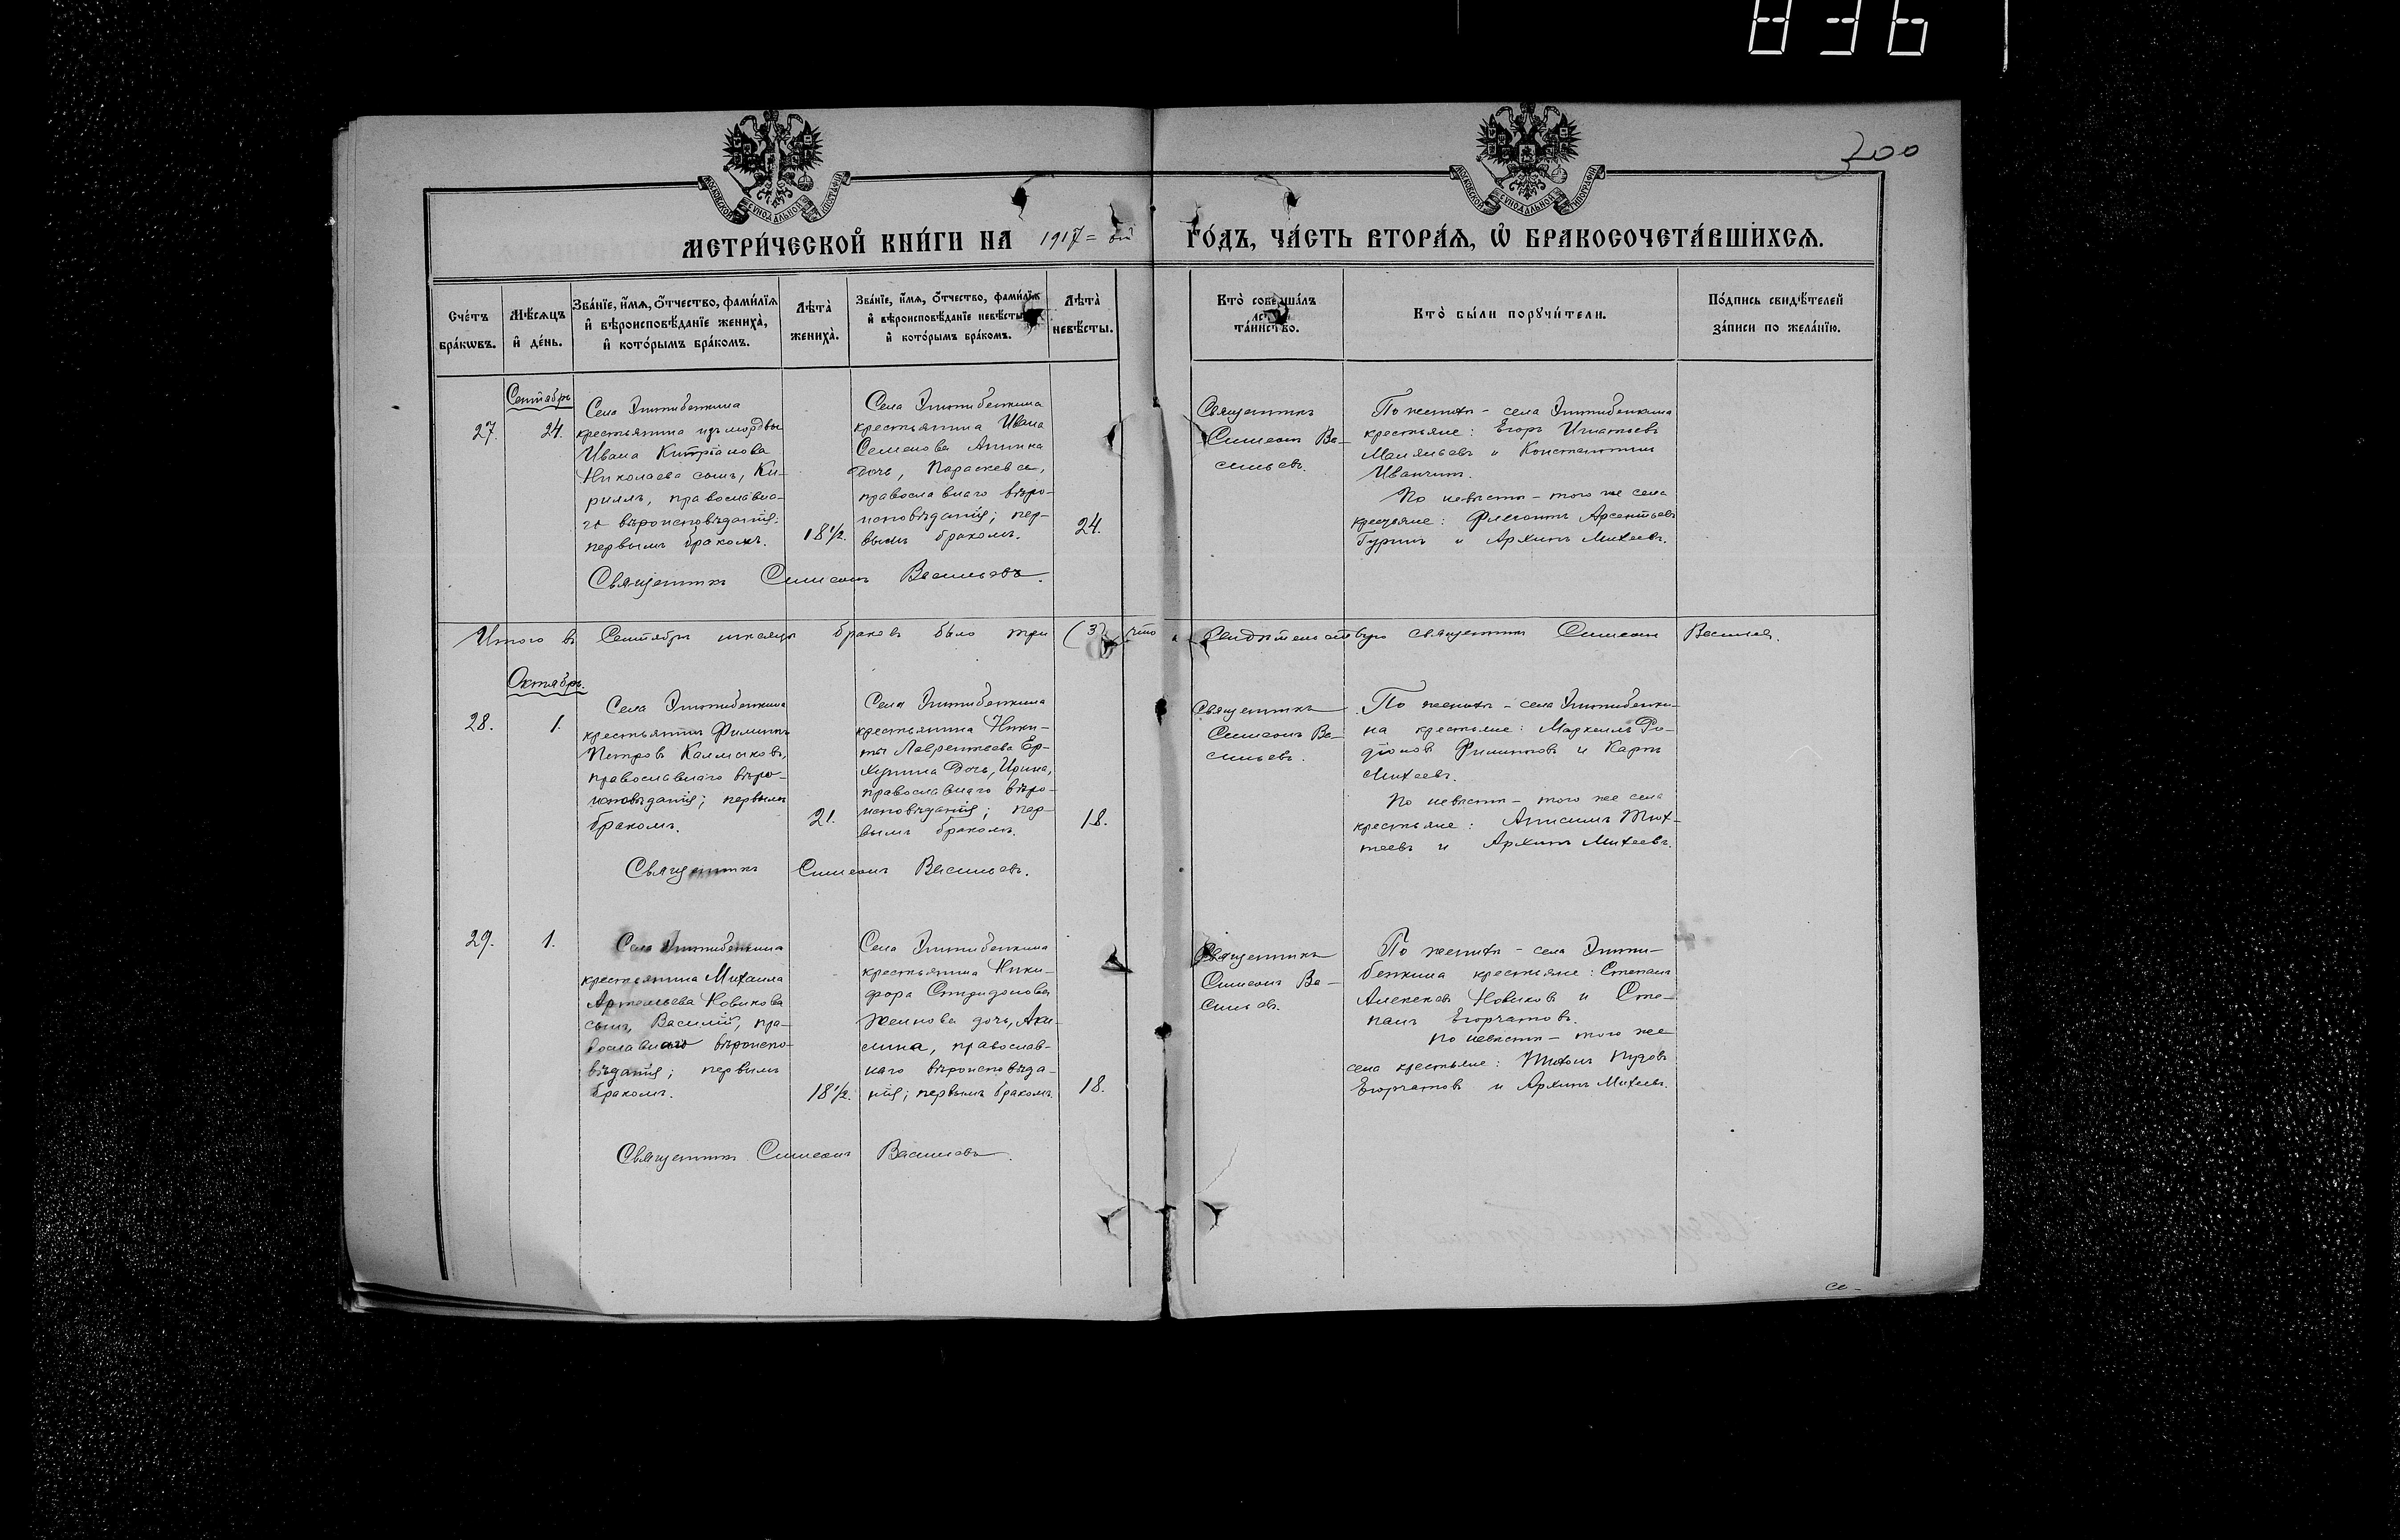 836
200
МОСКОВСКОЙ СѴНОДАЛЬНОЙ ТИПОГРАФІИ
МОСКОВСКОЙ СѴНОДАЛЬНОЙ ТИПОГРАФІИ
МЕТРИ́ЧЕСКОЙ КНИ́ГИ НА 1917=ый ГО́ДЪ, ЧА́СТЬ ВТОРА́Ѧ, Ѽ БРАКОСОЧЕТА́ВШИХСѦ.
Сче́тъ
бра́кѡвъ.
Мѣ́сѧцъ
и҆ де́нь.
Зва́нїе, и҆́мѧ, ѻ҆́тчество, фами́лїѧ
и҆ вѣроисповѣ́данїе жениха̀,
и҆ кото́рымъ бра́комъ.
Лѣта̀
жениха̀.
Зва́нїе, и҆́мѧ, ѻ҆́тчество, фами́лїѧ
и҆ вѣроисповѣ́данїе невѣ́сты,
и҆ кото́рымъ бра́комъ.
Лѣта̀
невѣ́сты.
Кто̀ соверша́лъ
та́инство.
Кто̀ бы́ли порꙋчи́тели.
По́дпись свидѣ́телей
за́писи по жела́нїю.
Сентябрь
27.
24.
Села
крестьянина изъ мордвы
Ивана Китріанова
Николаева сынъ, Ки-
риллъ, православна-
го вѣроисповѣданія;
первымъ бракомъ.
18 1/2.
Села
крестьянина Ивана
Семенова Анина
дочь, Параскева,
православнаго вѣро-
исповѣданія; пер-
вымъ бракомъ.
24.
Священникъ
Симеонъ Ва-
сильевъ.
По женихѣ - села
крестьяне: Егоръ Игнатьевъ
и Константинъ
Иванчинъ.
По невѣстѣ - того же села
крестьяне: Флегонтъ Арсентьевъ
Гуринъ и Архипъ Михеевъ.
Священникъ Симеонъ Васильевъ.
Итого въ Сентябрѣ мѣсяцѣ браковъ было три (3), что и свидѣтельствую священникъ Симеонъ Васильев.
Октябрь.
28.
1.
Села
крестьянинъ Филиппъ
Петровъ Калмыковъ,
православнаго вѣро-
исповѣданія; первымъ
бракомъ.
21.
Села
крестьянина Ники-
ты Лаврентьева Ер-
дочь, Ирина,
православнаго вѣро-
исповѣданія; пер-
вымъ бракомъ.
18.
Священникъ
Симеонъ Ва-
сильевъ.
По женихѣ - села
на крестьяне: Маркеллъ Ро-
діоновъ Филипповъ и Карпъ
Михеевъ.
По невѣстѣ - того же села
крестьяне: Анисимъ Тих-
и Архипъ Михеевъ.
Священникъ Симеонъ Васильевъ.
29.
1.
Села
крестьянина Михаила
Артемьева Новикова
сынъ, Василій, пра-
вославнаго вѣроиспо-
вѣданія; первымъ
бракомъ.
18 1/2.
Села
крестьянина Ники-
фора Спиридонова
дочь, Аки-
лина, православ-
наго вѣроисповѣда-
нія; первымъ бракомъ.
18.
Священникъ
Симеонъ Ва-
сильевъ.
По женихѣ - села
бенкина крестьяне: Степанъ
Алексеевъ Новиковъ и Сте-
панъ Егорчатовъ.
По невѣстѣ - того же
села крестьяне: Тихонъ Пудовъ
Егорчатовъ и Архипъ Михеевъ.
Священникъ Симеонъ Васильевъ.